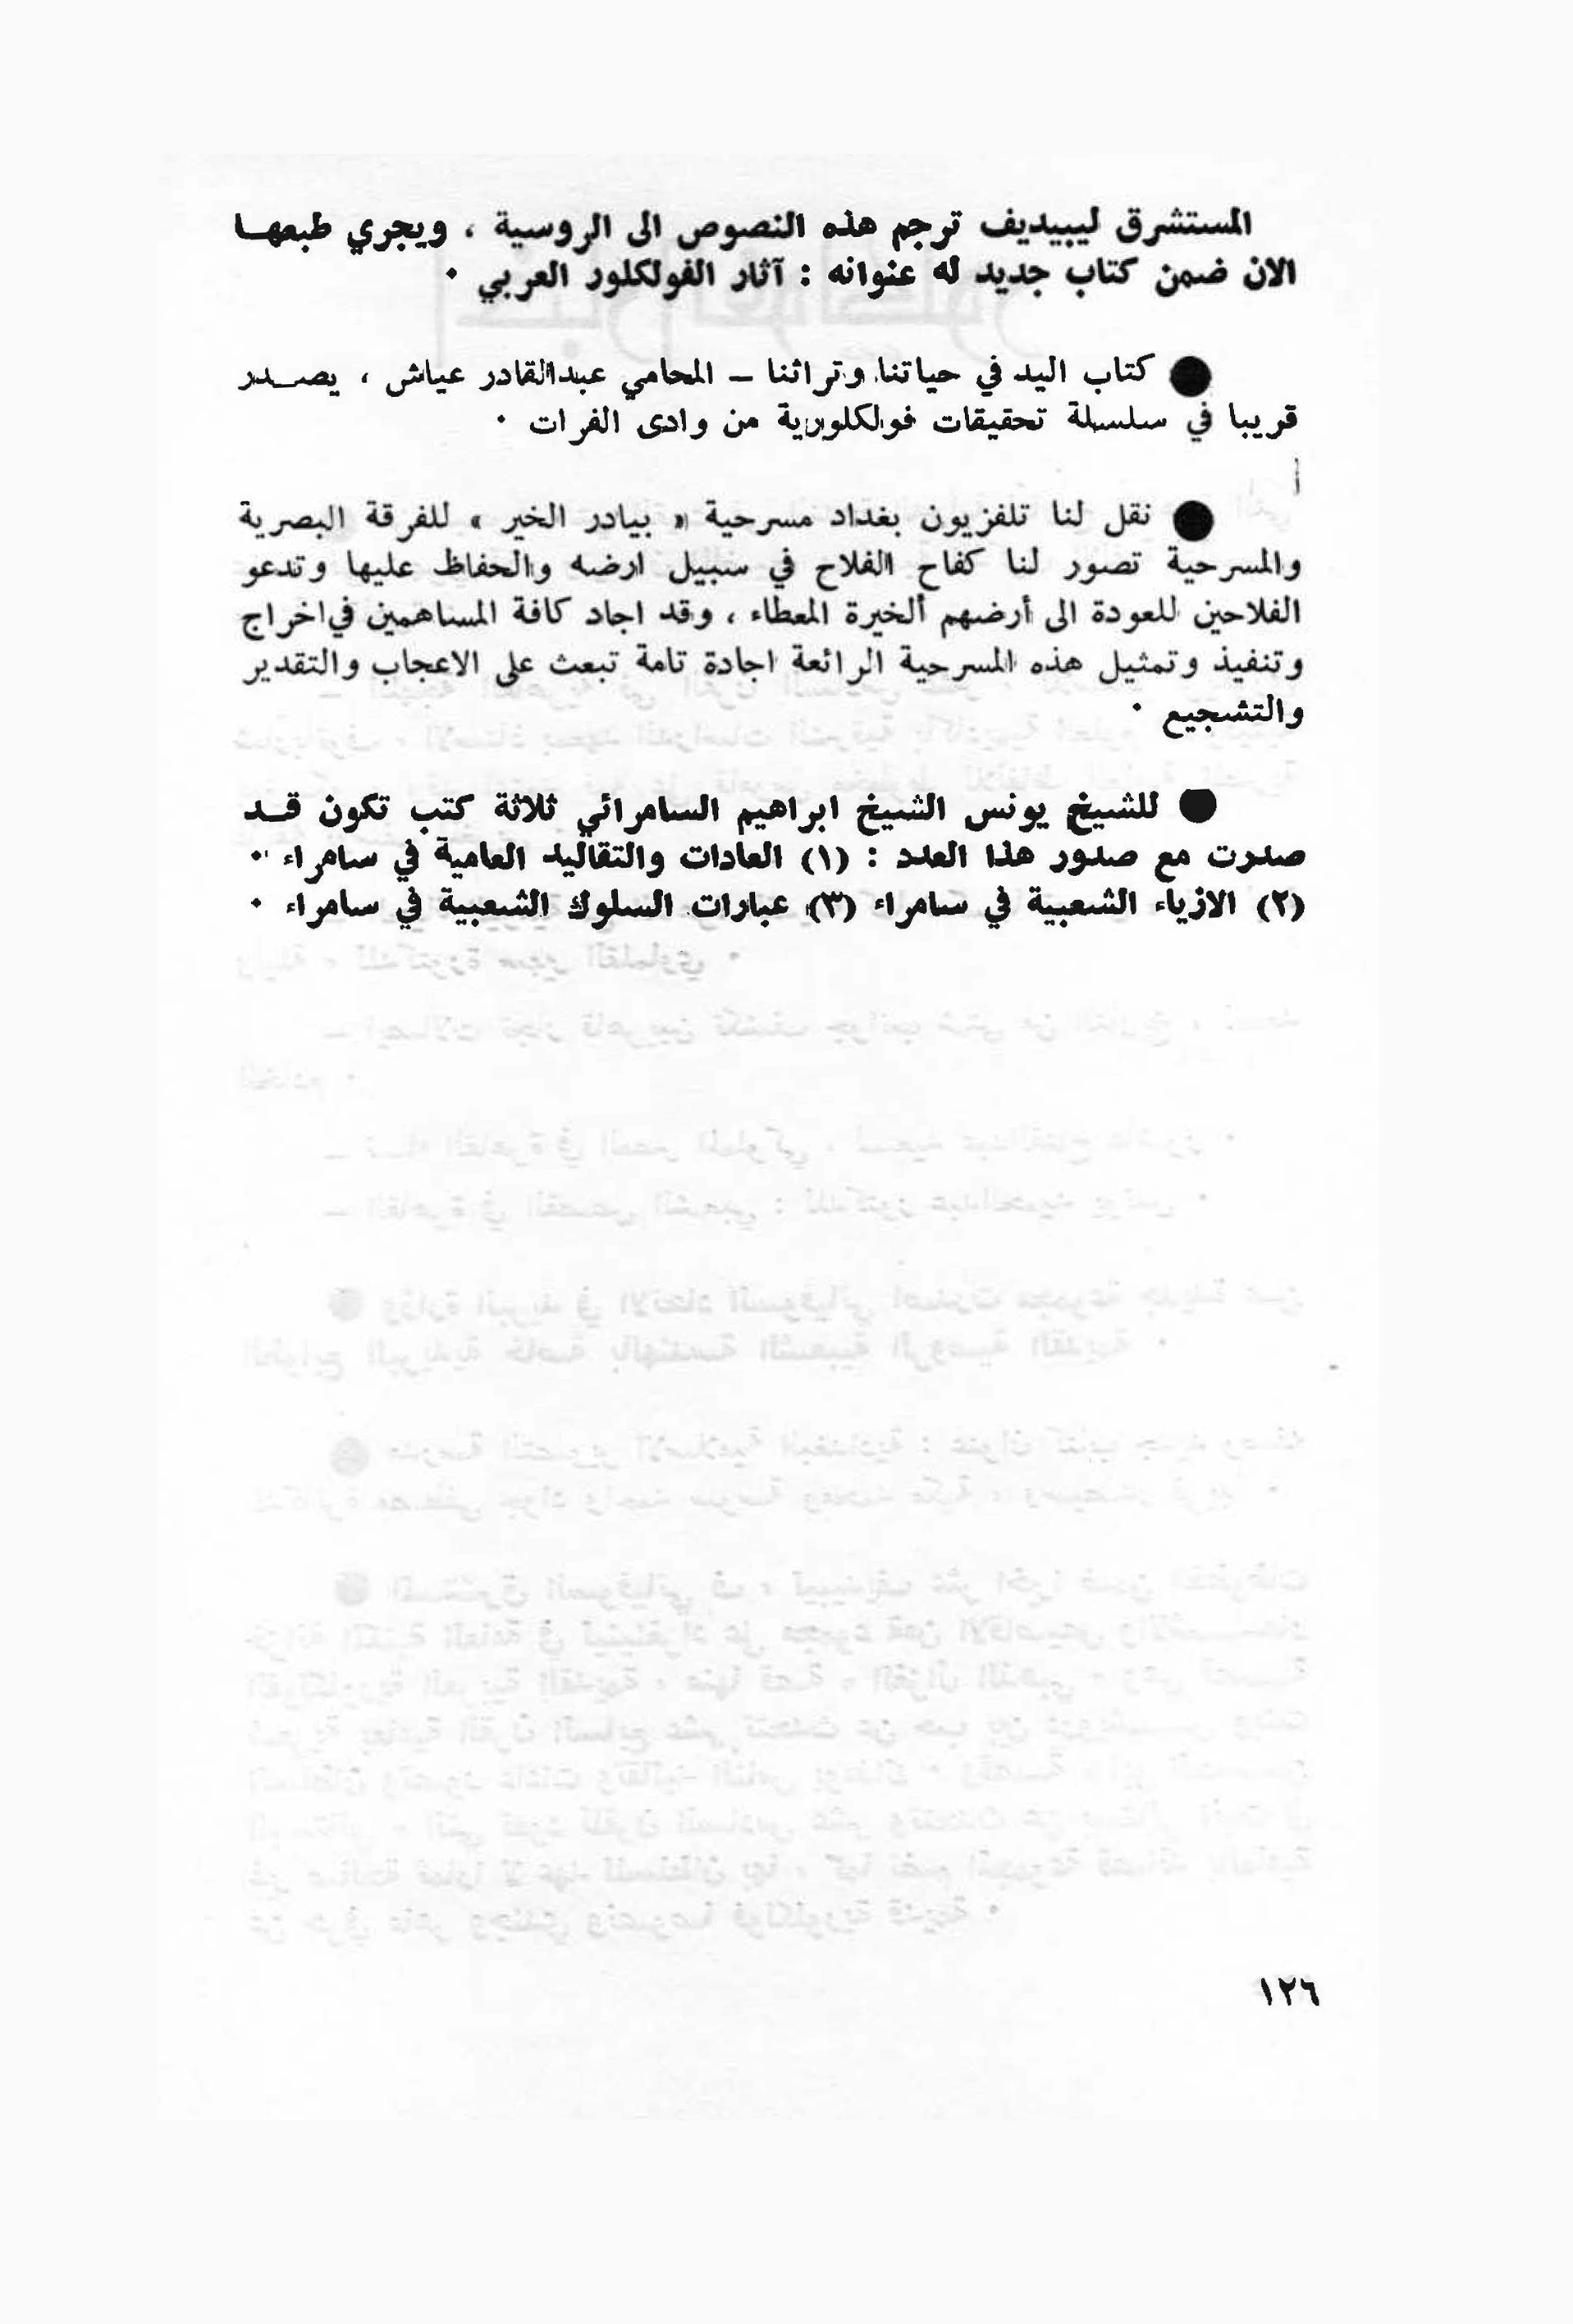 المستشرق ليبيديف ترجم هذه النصوص الى الروسية ، ويجري طبعهـا
الان ضمن كتاب جديد له عنوانه : آثار الفولكلور العربي ٠
● كتاب اليد في حياتنا وتراثنا – المحامي عبدالقادر عياش ، يصـدر
قريبا في سلسلة تحقيقات فولكلورية من وادى الفرات ٠
● نقل لنا تلفزيون بغداد مسرحية « بيادر الخير » للفرقة البصرية
والمسرحية تصور لنا كفاح الفلاح في سبيل ارضه والحفاظ عليها وتدعو
الفلاحين للعودة الى أرضهم ألخيرة المعطاء ، وقد اجاد كافة المساهمين في اخراج
وتنفيذ وتمثيل هذه المسرحية الرائعة اجادة تامة تبعث على الاعجاب والتقدير
والتشجيع ٠
● للشيخ يونس الشيخ ابراهيم السامرائي ثلاثة كتب تكون قـد
صدرت مع صدور هذا العدد : (١) العادات والتقاليد العامية في سامراء ٠
(٢) الازياء الشعبية في سامراء (٣) عبارات السلوك الشعبية في سامراء ٠
١٢٦